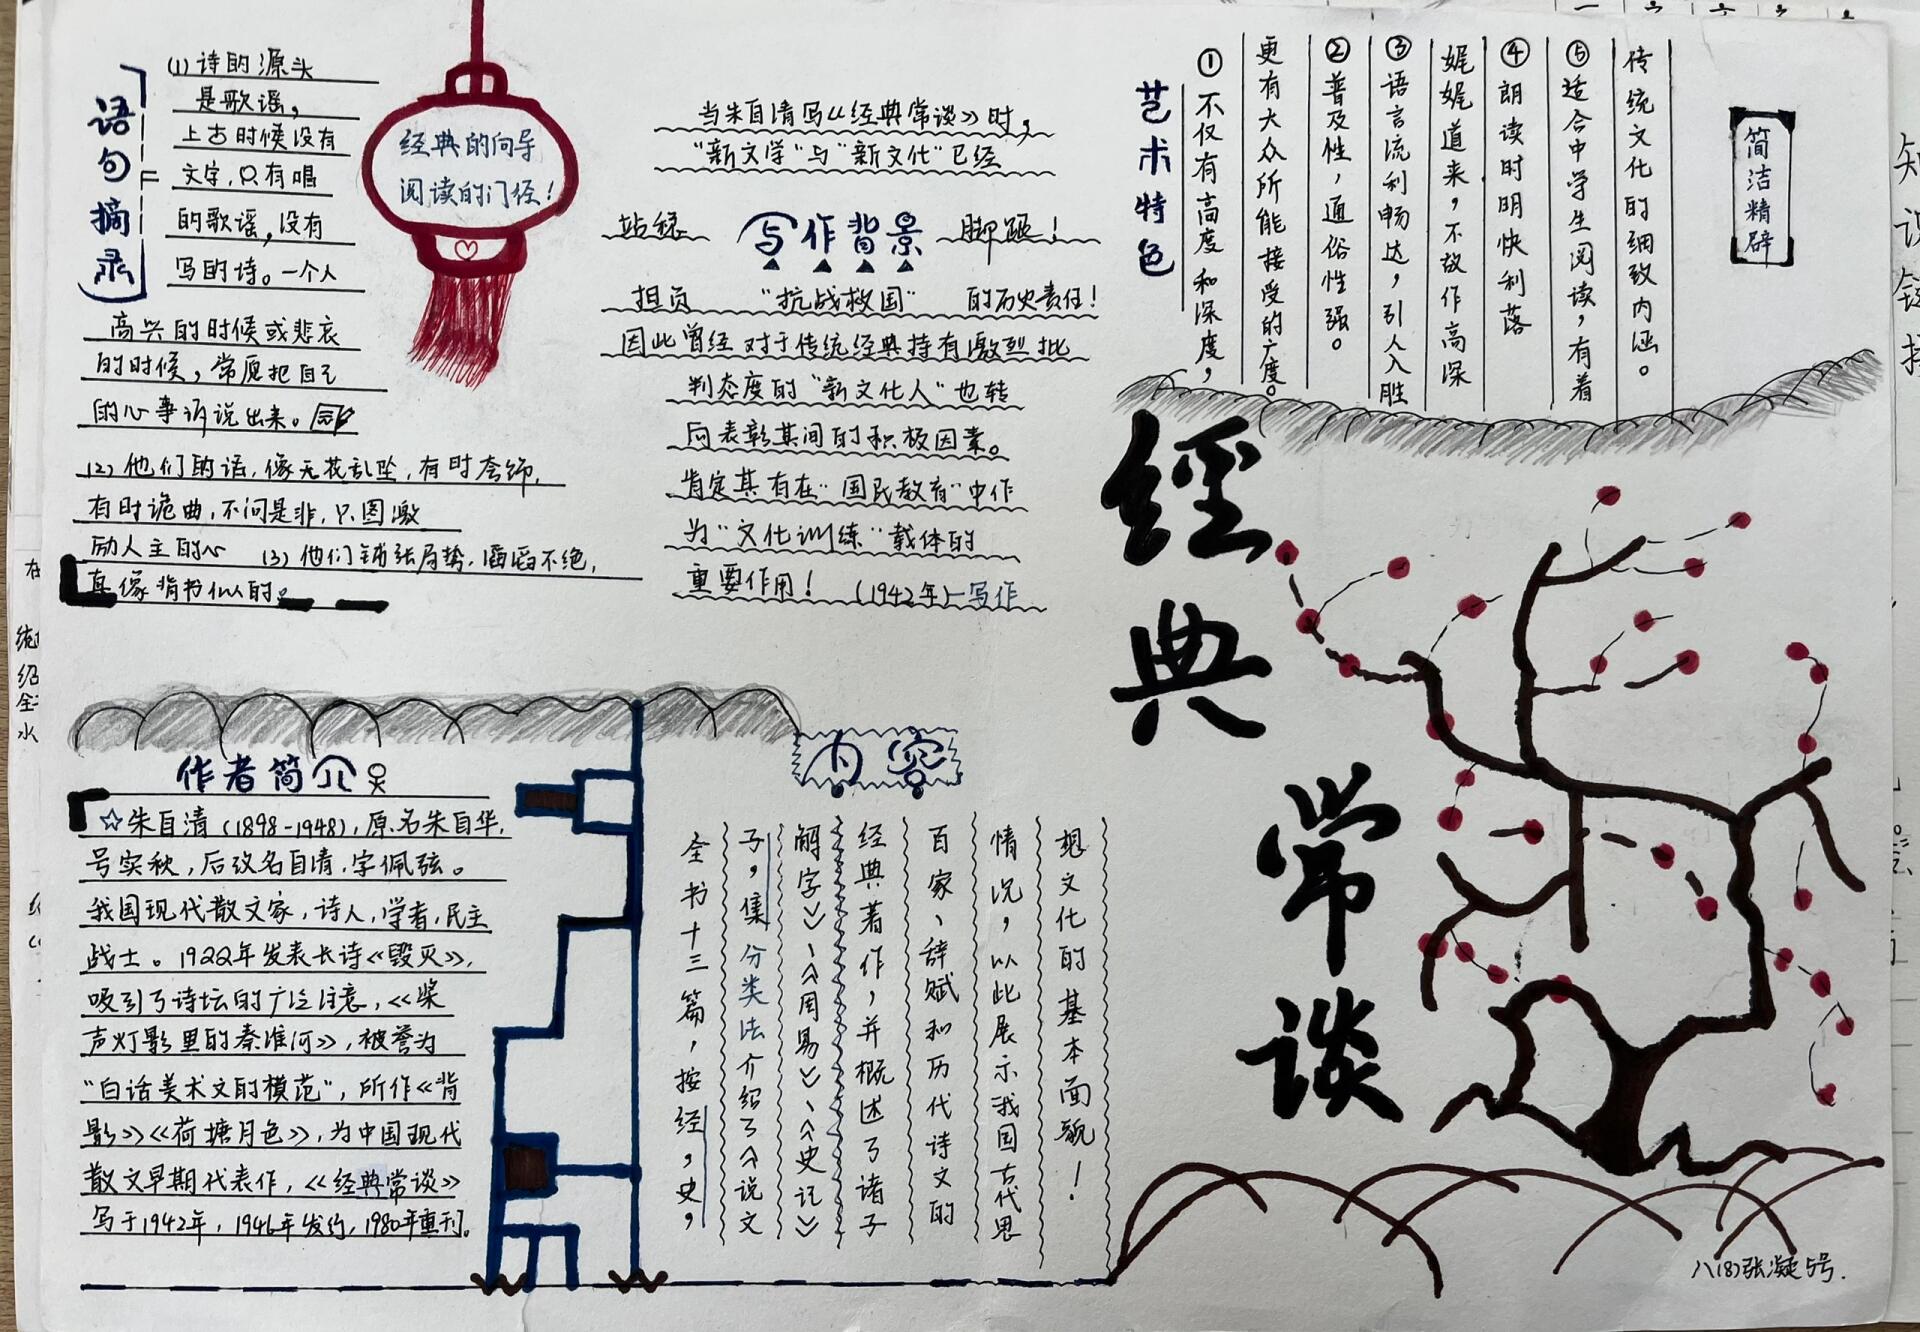 语句摘录
(1)诗的源头
是歌谣,
上古时候没有
文字,只有唱
的歌谣,没有
写的诗。一个人
高兴的时候或悲哀
的时候,常愿把自己
的心事诉说出来。
(2)他们的话,像天花乱坠,有时夸饰,
有时诡曲,不问是非,只图激
励人主的心 (3)他们铺张局势,滔滔不绝,
真像背书似的。
经典的向导
阅读的门径!
写作背景
当朱自清写《经典常谈》时,
“新文学”与“新文化”已经
站稳 脚跟!
担负 “抗战救国” 的历史责任!
因此曾经对于传统经典持有激烈批
判态度的“新文化人”也转
向表彰其间的积极因素。
肯定其有在“国民教育”中作
为“文化训练”载体的
重要作用! (1942年)-写作
艺术特色
①不仅有高度和深度,
更有大众所能接受的广度。
②普及性,通俗性强。
③语言流利畅达,引人入胜
娓娓道来,不故作高深
④朗读时明快利落
⑤适合中学生阅读,有着
传统文化的细致内涵。
简洁精辟
經典常谈
作者简介
☆朱自清(1898-1948),原名朱自华,
号实秋,后改名自清,字佩弦。
我国现代散文家,诗人,学者,民主
战士。1922年发表长诗《毁灭》,
吸引了诗坛的广泛注意,《桨
声灯影里的秦淮河》,被誉为
“白话美术文的模范”,所作《背
影》《荷塘月色》,为中国现代
散文早期代表作,《经典常谈》
写于1942年,1946年发行,1980年重刊。
内容
全书十三篇,按经,史,
子,集分类法介绍了《说文
解字》、《周易》、《史记》
经典著作,并概述了诸子
百家、辞赋和历代诗文的
情况,以此展示我国古代思
想文化的基本面貌!
八(8)张凝5号.